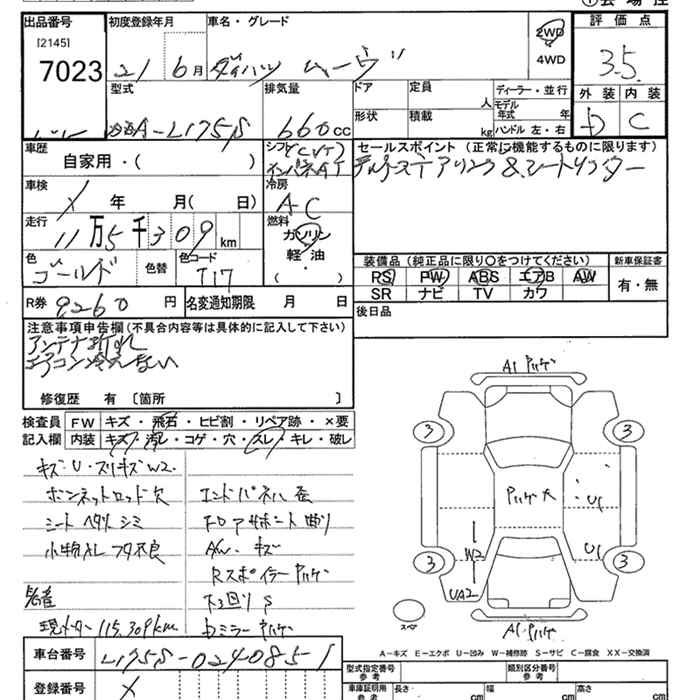 出品番号
[2145]
7023
初度登録年月
21年 6月
車名・グレード
ダイハツ ムーヴ
2WD
4WD
評価点
3.5
外装 内装
D C
型式
A-L175S
排気量
660cc
ドア 定員 人
形状 積載 kg
ディーラー・並行
モデル年式 年
ハンドル 左・右
車歴
自家用・( )
シフト (CVT)
インパネAT
セールスポイント(正常に機能するものに限ります)
車検
X 年 月( 日)
冷房
AC
走行
11万5千309km
燃料
ガソリン
軽油・
( )
色
ゴールド
色替
色コード
T17
装備品(純正品に限り○をつけてください)
RS PW ABS エアB AW
SR ナビ TV カワ
新車保証書
有・無
R券 9260円
名変通知期限 月 日
後日品
注意事項申告欄(不具合内容等は具体的に記入して下さい)
アンテナ折れ
エアコン冷えない
修復歴 有 〔箇所 〕
検査員記入欄
FW キズ・飛石・ヒビ割・リペア跡・×要
内装 キズ・汚レ・コゲ・穴・スレ・キレ・破レ
キズ・U・スリキズW2.
ボンネットロッド欠
シート ヘタリ シミ
小物入レ フタ不良
現メーター 115,309km
エンドパネル 歪
F・Dアサポート 曲り
AW. キズ
Rスポイラー ハゲ
下回り S
ドミラー ハゲ
A1
3
3
3
3
大
U1
U1
W2
UA2
A1
スペア
A−キズ E−エクボ U−凹み W−補修跡 S−サビ C−腐食 XX−交換済
車台番号
L175S-0240851
登録番号
X
型式指定番号 参考
類別区分番号 参考
車庫証明用 参考
長さ cm
幅 cm
高さ cm